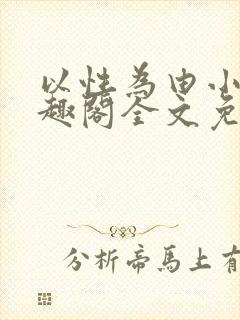 以性为由小
趣阁全文免
分析帝馬上有